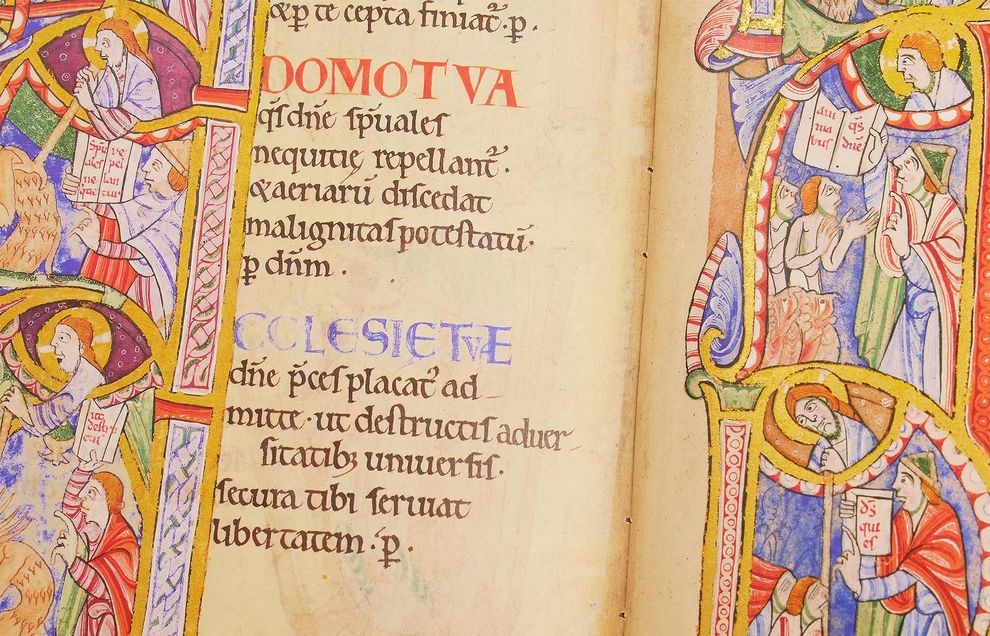 &p te cepta finiat̄ · p̄ ·
DOMO TVA
q̄s dn̄e sp̄uales
nequitię repellant̄ ·
& aeriarū discedat
malignitas potestatū ·
p dn̄m ·
CCLESIĘ TVÆ
dn̄e p̄ces placat̄ ad
mitte · ut destructis aduer
sitatib; uniuersis ·
secura tibi seruiat
libertatem · p̄ ·
ut
destru
q̄s
dn̄e
d̄s
qui
es